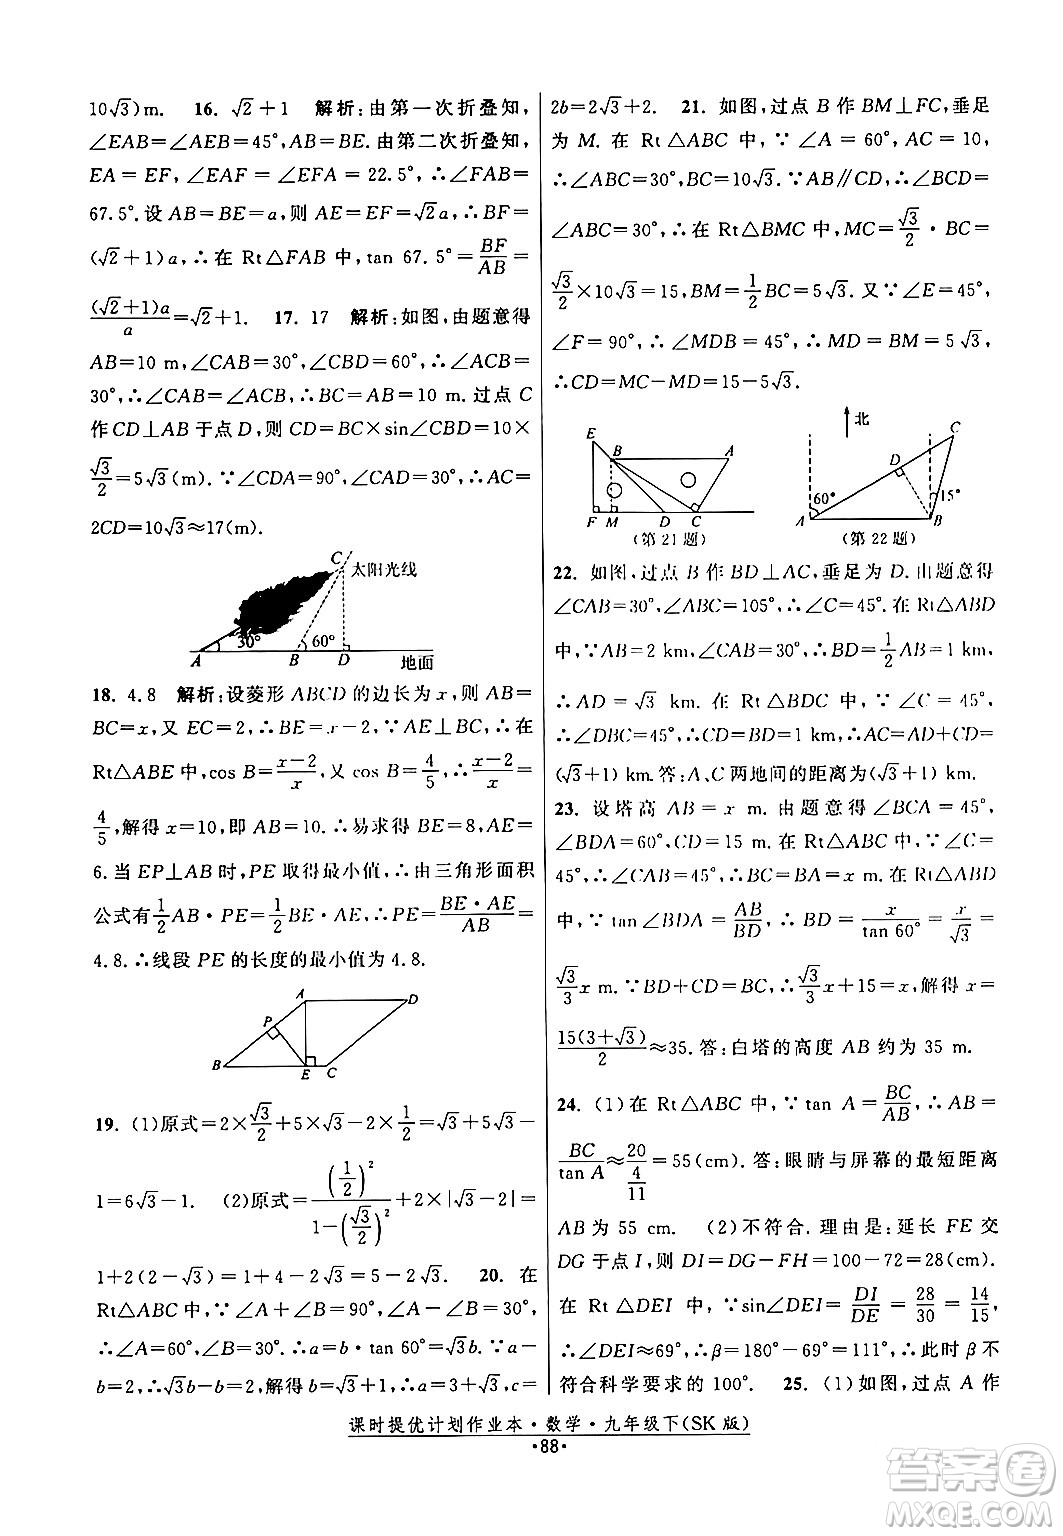 10√3)m.　16. √2+1　解析:由第一次折叠知,
∠EAB=∠AEB=45°,AB=BE.由第二次折叠知,
EA=EF,∠EAF=∠EFA=22.5°,∴∠FAB=
67.5°.设AB=BE=a,则AE=EF=√2a,∴BF=
(√2+1)a,∴在Rt△FAB中,tan 67.5°=BF/AB=
(√2+1)a/a=√2+1.　17. 17　解析:如图,由题意得
AB=10 m,∠CAB=30°,∠CBD=60°,∴∠ACB=
30°,∴∠CAB=∠ACB,∴BC=AB=10 m.过点C
作CD⊥AB于点D,则CD=BC×sin∠CBD=10×
√3/2=5√3(m).∵∠CDA=90°,∠CAD=30°,∴AC=
2CD=10√3≈17(m).
C
太阳光线
30°
60°
A
B
D
地面
18. 4.8　解析:设菱形ABCD的边长为x,则AB=
BC=x,又EC=2,∴BE=x-2,∵AE⊥BC,∴在
Rt△ABE中,cos B=(x-2)/x,又cos B=4/5,∴(x-2)/x=
4/5,解得x=10,即AB=10.∴易求得BE=8,AE=
6.当EP⊥AB时,PE取得最小值,∴由三角形面积
公式有1/2AB·PE=1/2BE·AE,∴PE=BE·AE/AB=
4.8.∴线段PE的长度的最小值为4.8.
A
D
P
B
E
C
19. (1)原式=2×√3/2+5√3-2×1/2=√3+5√3-
1=6√3-1.　(2)原式=(1/2)²/(1-(√3/2)²)+2×|√3-2|=
1+2(2-√3)=1+4-2√3=5-2√3.　20. 在
Rt△ABC中,∵∠A+∠B=90°,∠A-∠B=30°,
∴∠A=60°,∠B=30°.∴a=b·tan 60°=√3b.∵a-
b=2,∴√3b-b=2,解得b=√3+1,∴a=3+√3,c=
2b=2√3+2.　21. 如图,过点B作BM⊥FC,垂足
为M.在Rt△ABC中,∵∠A=60°,AC=10,
∴∠ABC=30°,BC=10√3.∵AB∥CD,∴∠BCM=
∠ABC=30°,∴在Rt△BMC中,MC=√3/2·BC=
√3/2×10√3=15,BM=1/2BC=5√3.又∵∠E=45°,
∠F=90°,∴∠MDB=45°,∴MD=BM=5√3,
∴CD=MC-MD=15-5√3.
E
B
A
F
M
D
C
(第21题)
北
C
D
60°
15°
A
B
(第22题)
22. 如图,过点B作BD⊥AC,垂足为D.由题意得
∠CAB=30°,∠ABC=105°,∴∠C=45°.在Rt△ABD
中,∵AB=2 km,∠CAB=30°,∴BD=1/2AB=1 km,
∴AD=√3 km.在Rt△BDC中,∵∠C=45°,
∴∠DBC=45°,∴CD=BD=1 km,∴AC=AD+CD=
(√3+1) km.答:A、C两地间的距离为(√3+1) km.
23. 设塔高AB=x m.由题意得∠BCA=45°,
∠BDA=60°,CD=15 m.在Rt△ABC中,∵∠C=
45°,∴∠CAB=45°,∴BC=BA=x m.在Rt△ABD
中,∵tan∠BDA=AB/BD,∴BD=x/tan 60°=x/√3=
√3/3x m.∵BD+CD=BC,∴√3/3x+15=x,解得x=
15(3+√3)/2≈35.答:白塔的高度AB约为35 m.
24. (1)在Rt△ABC中,∵tan A=BC/AB,∴AB=
BC/tan A≈20/(4/11)=55(cm).答:眼睛与屏幕的最短距离
AB为55 cm.　(2)不符合.理由是:延长FE交
DG于点I,则DI=DG-FH=100-72=28(cm).
在Rt△DEI中,∵sin∠DEI=DI/DE=28/30=14/15,
∴∠DEI≈69°,∴β=180°-69°=111°,∴此时β不
符合科学要求的100°.　25. (1)如图,过点A作
课时提优计划作业本·数学·九年级下(SK版)
·88·
答案圈
MXQE.COM